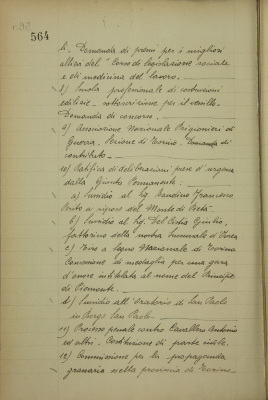 564
h. Domanda di premi per i migliori
allievi del "Corso di legislazione sociale
e di medicina del lavoro. —
8) Scuola professionale di costruzioni
edilizie - sottoscrizione per il vessillo.
Domanda di concorso. —
9) Associazione Nazionale Prigionieri di
Guerra. Sezione di Torino. Domanda di
contributo. —
10) Ratifica di deliberazioni prese d'urgenza
dalla Giunta Permanente:
a) Sussidio al Sig. Francesco
di Pietà. —
b) Sussidio al Sig. Del Giulio,
fattorino della nostra Succursale d'Ivrea
c) Tiro a Segno Nazionale di Torino
Concessione di medaglia per una gara
d'onore intitolata al nome del Principe
di Piemonte. —
d) Sussidio all'Oratorio di San Paolo
in Borgo San Paolo. —
11) Processo penale contro Cavallero Antonio
ed altri. Costituzione di parte civile.
12) Commissione per la propaganda
granaria nella provincia di Torino.